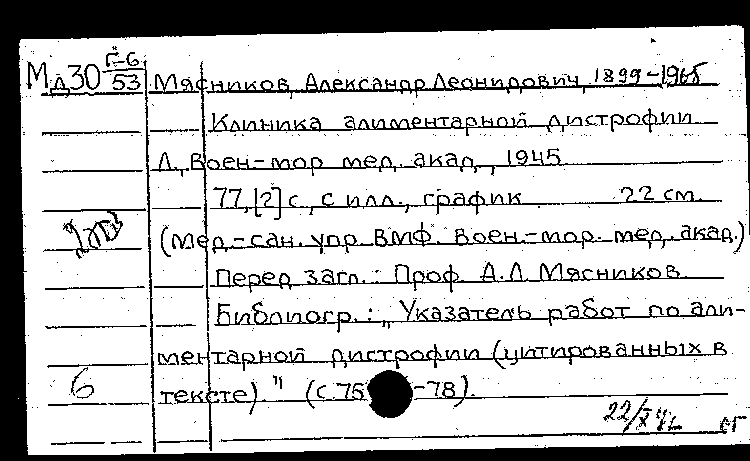 Мд30 Г-6/53 Мясников, Александр Леонидович, 1899-1965
Клиника алиментарной дистрофии
Л., Воен-мор мед. акад., 1945
77, [2] с., с илл., график 22 см.
(Мед.-сан. упр. ВМФ. Воен.-мор. мед. акад.)
Перед загл.: Проф. А.Л. Мясников
Библиогр.: „Указатель работ по али-
ментарной дистрофии (цитированных в
6 тексте)." (с. 75 -78).
22/X